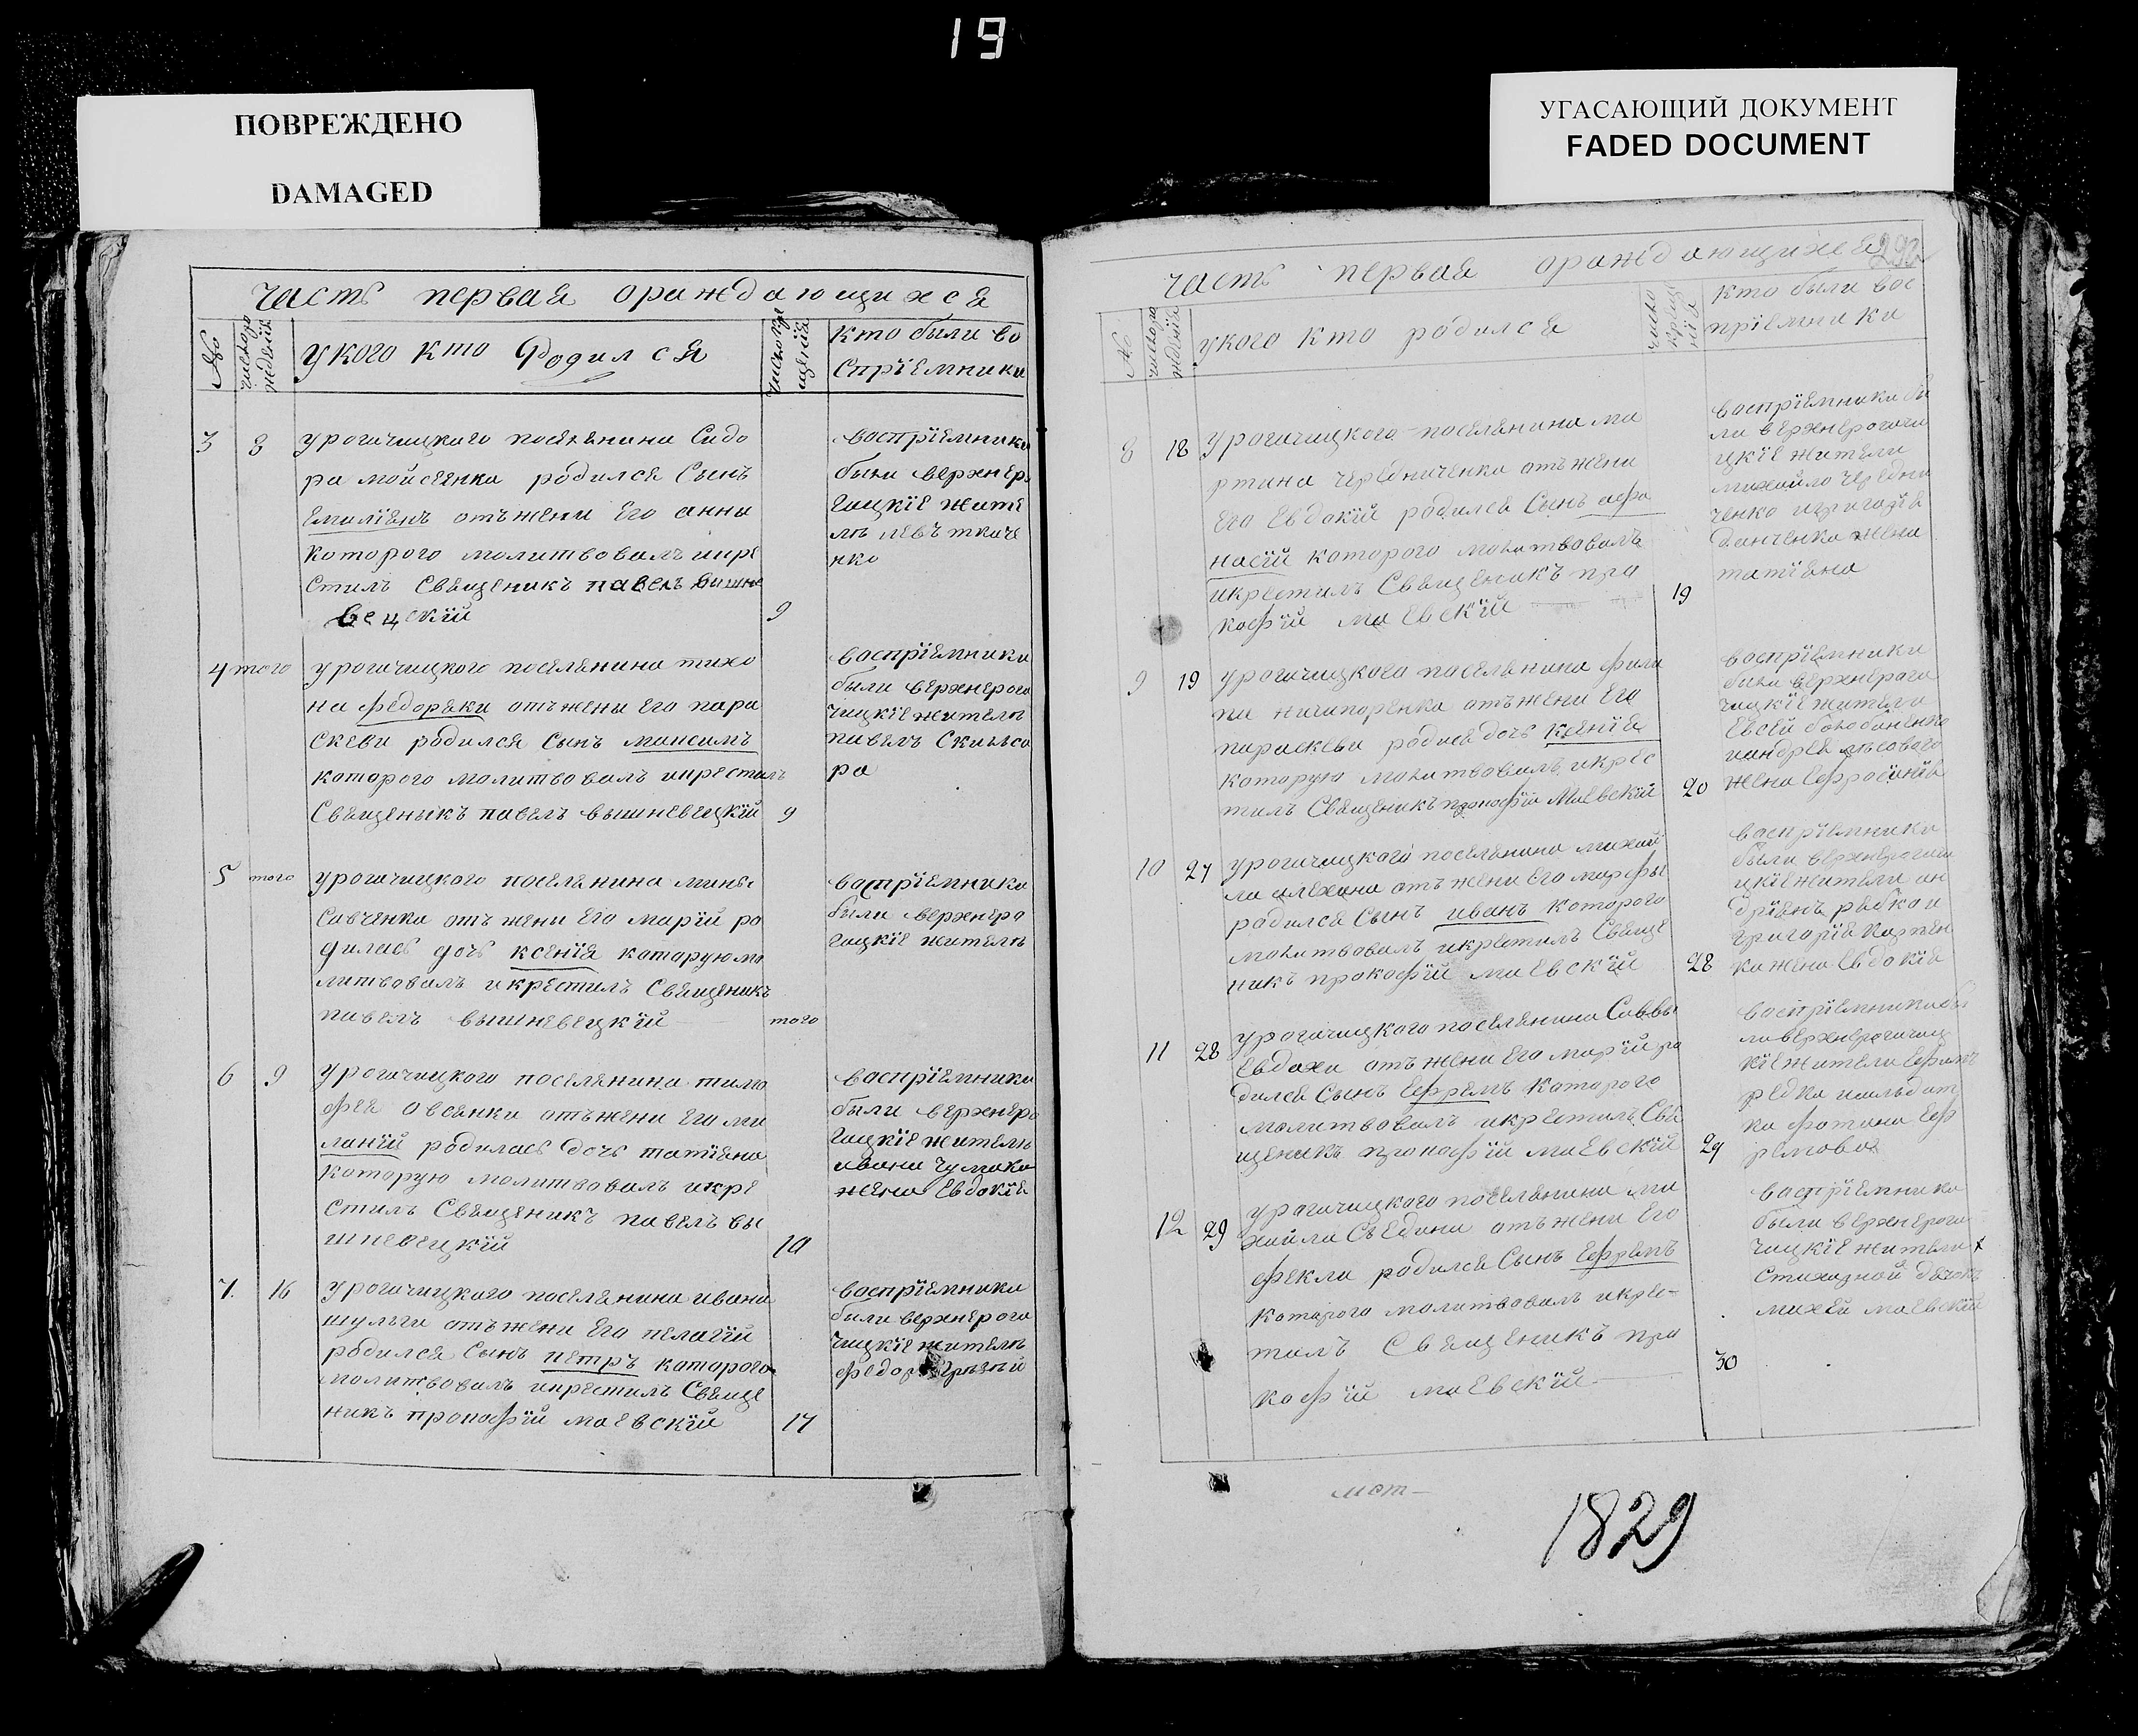 19
ПОВРЕЖДЕНО
DAMAGED
УГАСАЮЩИЙ ДОКУМЕНТ
FADED DOCUMENT
часть первая ораждающихся
№
число ро
ждения
укого кто родился
число кре
щения
кто были во
спрїемники
3 8
урогачицкаго поселянина Сидо
ра мойсеенка родился Сынъ
Емилїянъ отъ жени Его анни
которого молитвовалъ икре
стилъ Священикъ павелъ вишне
вецкїй
9
воспрїемники
были верхнеро
гацкїе жите
лѣ левъ ткаче
нко
4 того
урогачицкого поселянина тихо
на федоряки отъ жени Его пара
скеви родился Сынъ максимъ
которого молитвовалъ икрестилъ
Священикъ павелъ вышневецкїй
9
воспрїемники
были верхнерога
чицкїе жителѣ
павелъ
ра
5 того
урогачицкого поселянина мины
Савченка отъ жени Его марїй ро
дилась дочь ксенїя которую мо
литвовалъ икрестилъ Священикъ
павелъ вышневецкїй
того
воспрїемники
были верхнеро
гацкїе жителѣ
6 9
урогачицкого поселянина тимо
фея овсянки отъ жени Его ма
ланїй родилась дочь татїяна
которую молитвовалъ икре
стилъ Священикъ павелъ вы
шневецкїй
10
воспрїемники
были верхнеро
гацкїе жителѣ
ивана чумака
жена Евдокїя
7. 16
урогачицкаго поселянина ивана
шульги отъ жени Его пелагїй
родился Сынъ петръ которого
молитвовалъ икрестилъ Свяще
никъ прокофїй маевскїй
17
воспрїемники
были верхнерога
чицкїе жителѣ
федоръ грязный
часть первая ораждающихся
292
№
число ро
ждения
укого кто родился
число
креще
нїя
кто были вос
прїемники
8 18
урогачицкого поселянина ма
ртина чередниченка отъ жени
Его Евдокїй родился Сынъ афа
насїй которого молитвовалъ
икрестилъ Священикъ про
кофїй маевскїй
19
воспрїемники бы
ли верхнерогачи
цкїе жители
михайло чередни
ченко игригорїя
данченка жена
татїяна
9 19
урогачицкаго поселянина фили
па ничипоренка отъ жени Его
параскеви родися дочь ксенїя
которую молитвовалъ икрес
тилъ Священикъ прокофїй Маевскїй
20
воспрїемники
были верхнерога
чицкїе жители
Евсей
иандрея лѣсового
жена Ефросинїя
10 27
урогачицкаго поселянина михай
ла алехина отъ жени Его марфы
родился Сынъ иванъ которого
молитвовалъ икрестилъ Свяще
никъ прокофїй маевскїй
28
воспрїемники
были верхнерогачи
цкїе жители ан
дрїянъ рябко и
григорїя карпен
ка жена Евдокїя
11 28
урогачицкого поселянина Саввы
Евдохи отъ жени Его марїй ро
дился Сынъ Ефремъ которого
молитвовалъ икрестилъ Свя
щеникъ прокофїй маевскїй
29
воспрїемники бы
ли верхнерогачиц
кїе жители Ефимъ
редка исолдат
ка фотина Еф
ремова
12 29
урогачицкого поселянина ми
хайла Съедина отъ жени Его
феклы родился Сынъ Ефремъ
которого молитвовалъ икрес-
тилъ Священикъ про
кофїй маевскїй
30
воспрїемники
были верхнерога
чицкїе жители
стихарной дячокъ
михей маевскїй
1829